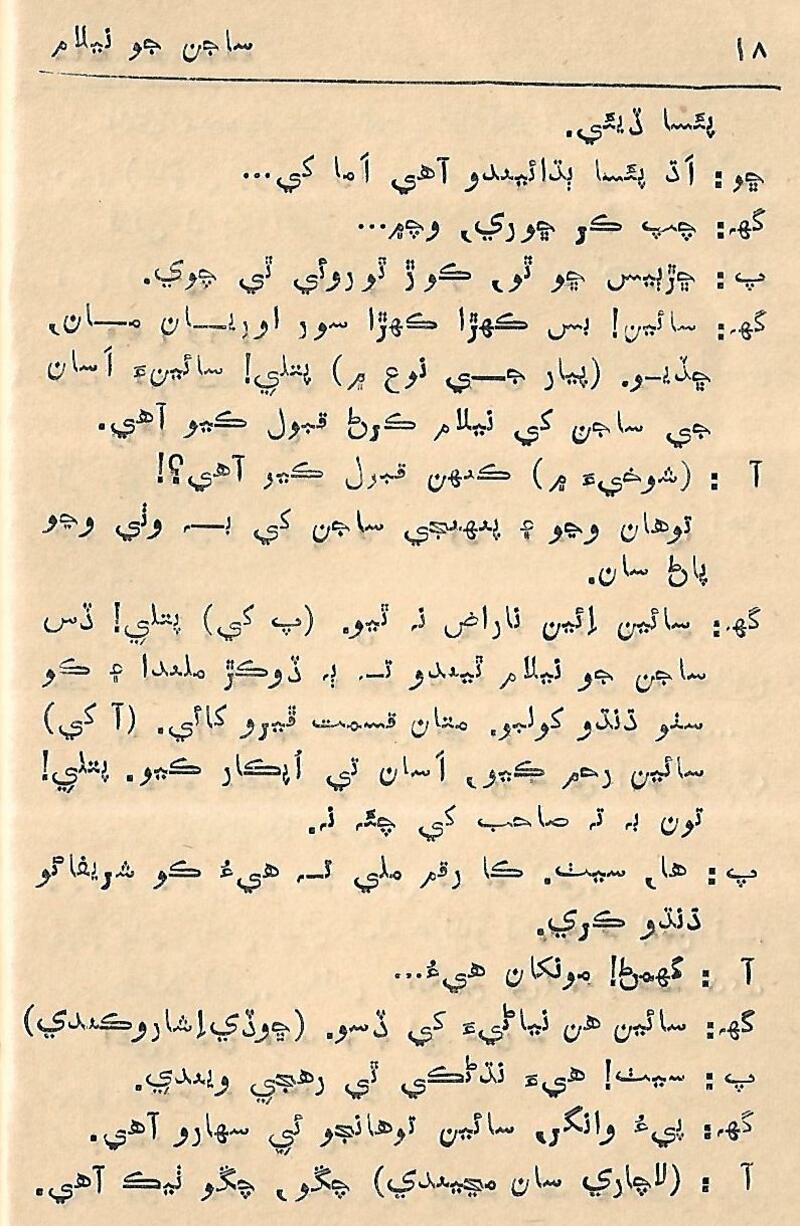 ١٨ ساجن جو نيلام
پئسا ڏيئي.
ڇو: اَڌ پئسا ٻڌائيندو آهي اَما کي...
گهه: چپ ڪر ڇوري، وڃ...
پ: ڇڙٻيس ڇو ٿو، ڪوڙ ٿوروئي ٿي چوي.
گهه: سائين! بس ڪهڙا ڪهڙا سور اوريـــان مـــان،
ڇڏيو. (پيار جـــي نوع ۾) پتلي! سائينءَ اَسان
جي ساجن کي نيلام ڪرڻ قبول ڪيو آهي.
آ : (شوخيءَ ۾) ڪنهن قبول ڪيو آهي؟!
توهان وڃو ۽ پنهنجي ساجن کي بـــہ وٺي وڃو
پاڻ سان.
گهه: سائين اِئين ناراض نہ ٿيو. (پ کي) پتلي! ڏس
ساجن جو نيلام ٿيندو تـــہ ٻہ ڏوڪڙ ملندا ۽ ڪو
سٺو ڌنڌو کولبو. متان قسمت ڦيرو کائي. (آ کي)
سائين رحم ڪيو، اَسان تي اُپڪار ڪيو. پتلي!
تون بہ تہ صاحب کي چئہ نہ.
پ: ها، سيٺ. ڪا رقم ملي تـــہ هيءُ ڪو شريفاڻو
ڌنڌو ڪري.
آ : گهمڻ! مونکان هيءُ...
گهه: سائين هن نياڻيءَ کي ڏسو. (ڇوڏي اِشارو ڪندي)
پ: سيٺ! هيءَ ننڌڻڪي ٿي رهجي ويندي.
گهه: پيءُ وانگر، سائين توهانجو ئي سهارو آهي.
آ : (لاچاري سان مڃيندي) چڱو، چڱو ٺيڪ آهي.